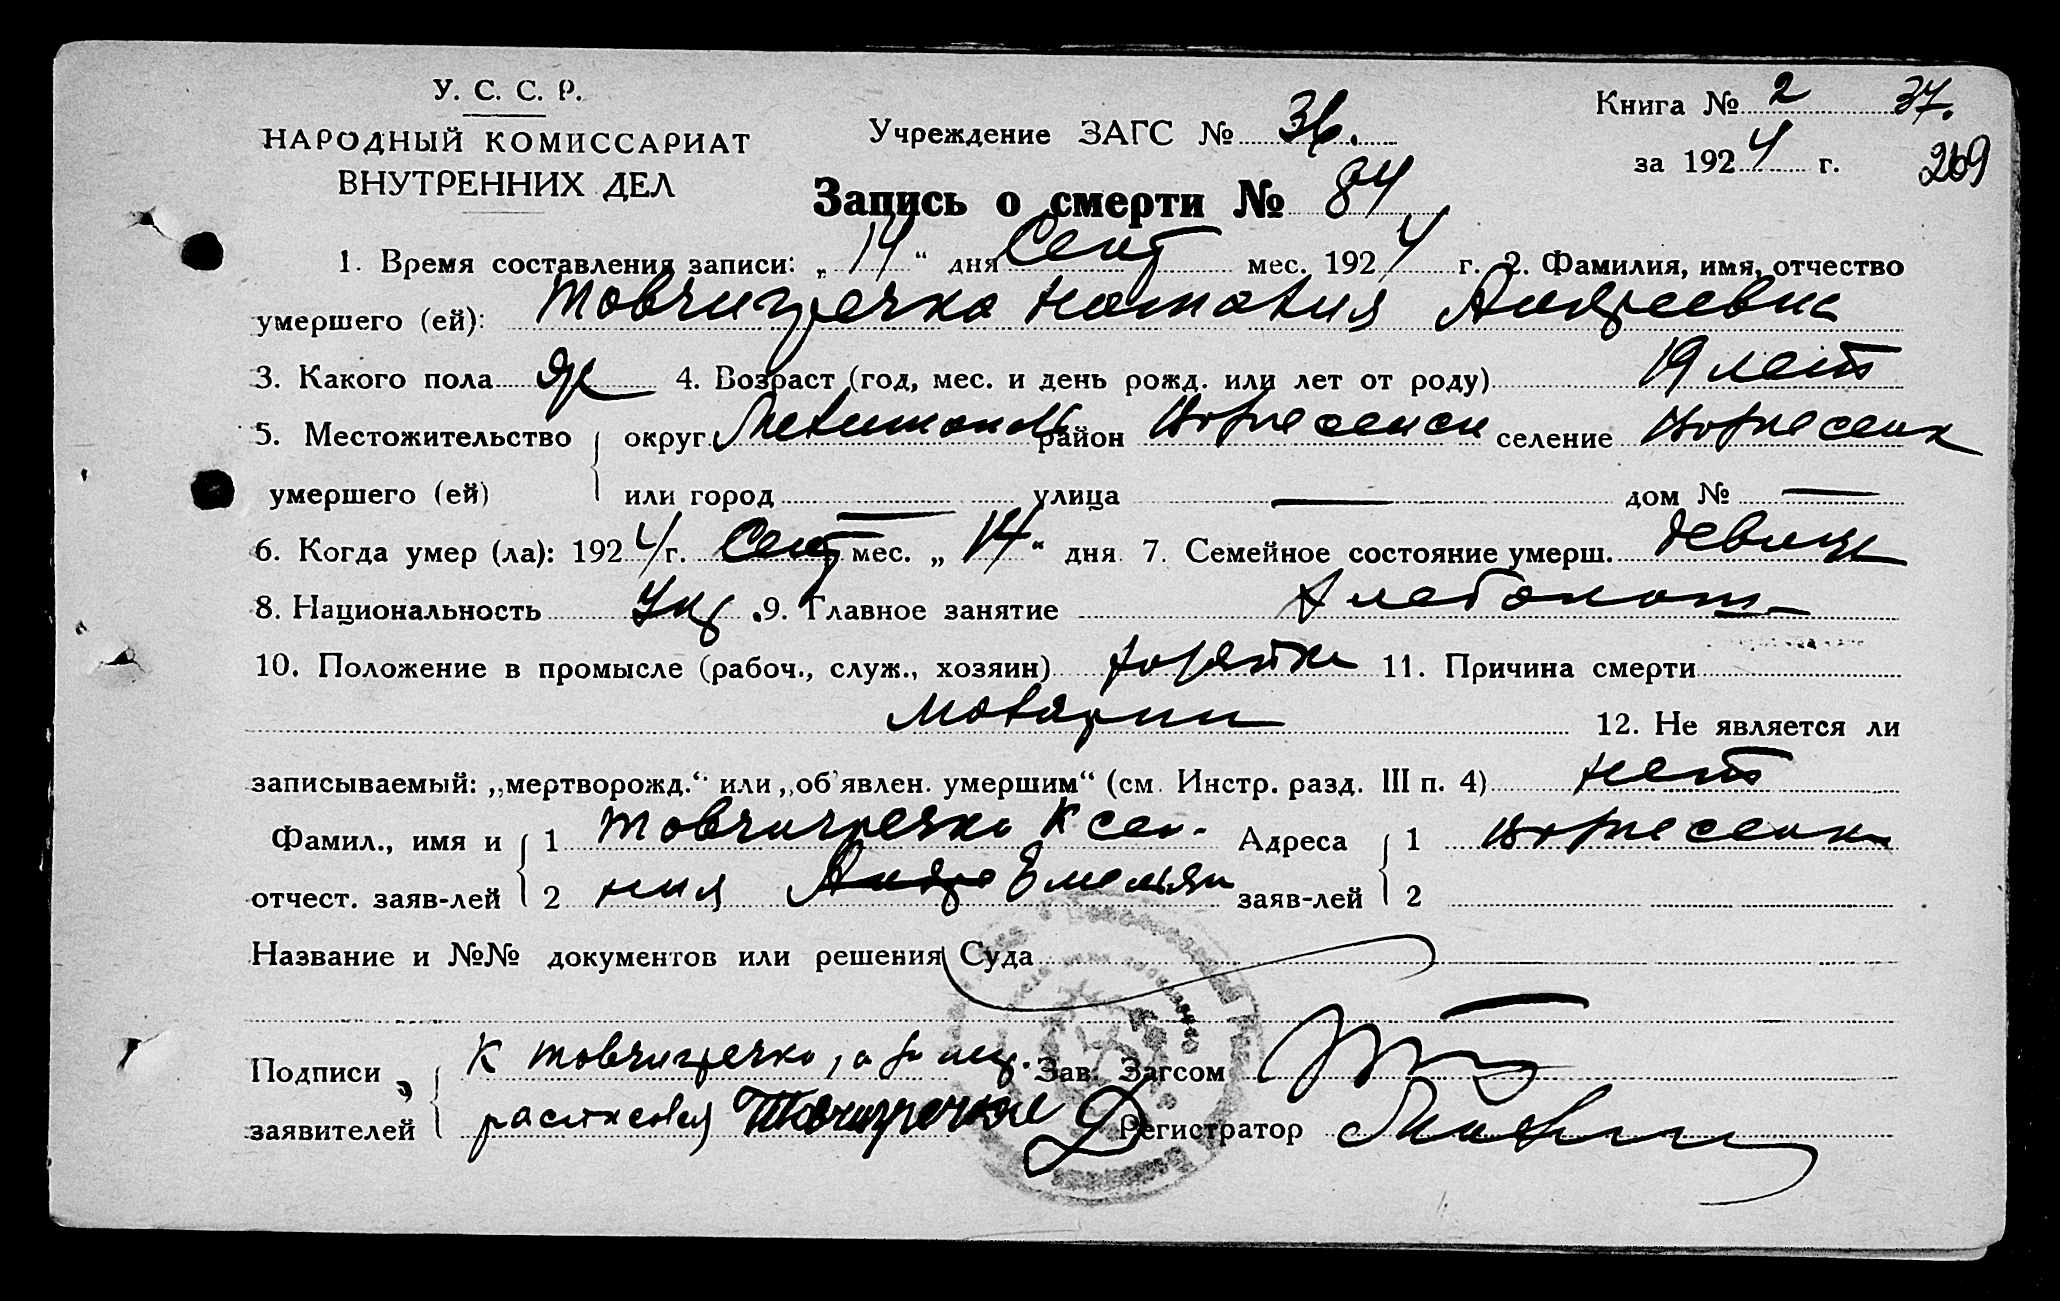 У. С. С. Р.
НАРОДНЫЙ КОМИССАРИАТ
ВНУТРЕННИХ ДЕЛ
Учреждение ЗАГС № 36.
Книга № 2 37.
за 1924 г. 269
Запись о смерти № 84
1. Время составления записи: „14“ дня Сент мес. 1924 г. 2. Фамилия, имя, отчество
умершего (ей): Товчигречка Наталия Андреевна
3. Какого пола 4. Возраст (год, мес. и день рожд. или лет от роду) 19 лет
5. Местожительство округ район Вознесенск селение Вознесенк
умершего (ей) или город — улица — дом № —
6. Когда умер (ла): 1924 г. Сент мес. „14“ дня 7. Семейное состояние умерш. девица
8. Национальность Укр. 9. Главное занятие Хлебопаш
10. Положение в промысле (рабоч., служ., хозяин) хозяйка 11. Причина смерти
малярии 12. Не является ли
записываемый: „мертворожд.“ или „об'явлен. умершим“ (см. Инстр. разд. III п. 4) нет
Фамил., имя и 1 Товчигречко Ксе- Адреса 1 Вознесенк
отчест. заяв-лей 2 ния Андре Емельян заяв-лей 2
Название и №№ документов или решения Суда
Подписи К Товчигречко, а за нец. Зав. Загсом
заявителей расписался Товчигречко Регистратор